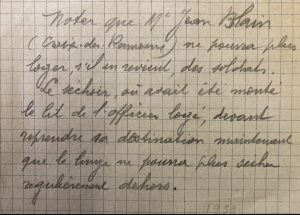 Noter que Mr Jean Blain
(Croix-des-Rameaux) ne pourra plus
loger s'il en revient, des soldats.
Le séchoir, où avait été monté
le lit de l'officier logé, devant
reprendre sa destination maintenant
que le linge ne pourra plus sécher
régulièrement dehors.
1939